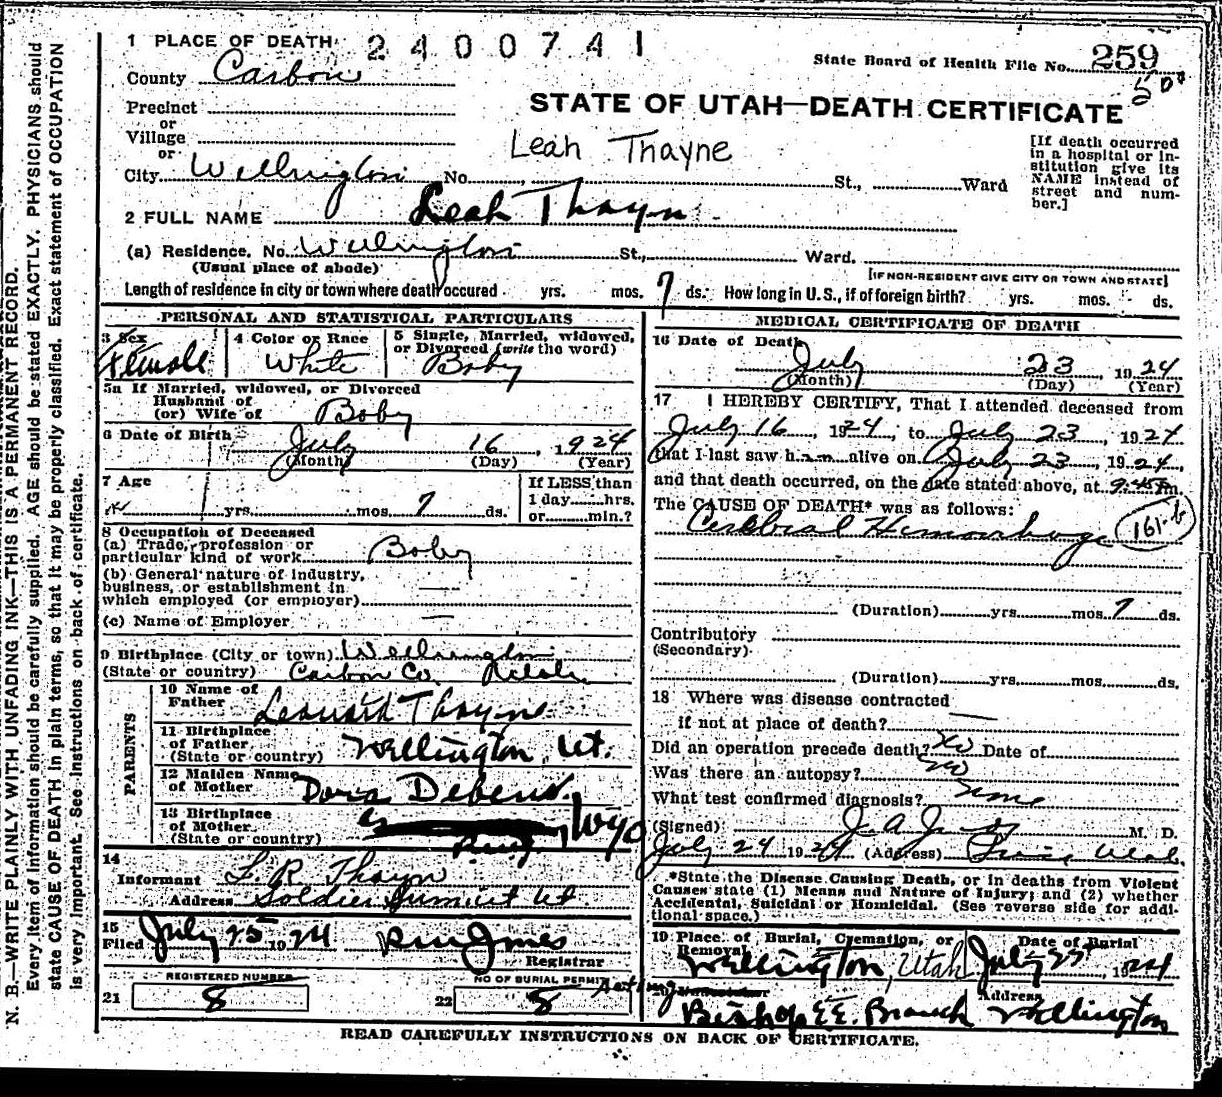 1 PLACE OF DEATH 2400741
State Board of Health File No. 259
County Carbon
500
Precinct
STATE OF UTAH—DEATH CERTIFICATE
or
Village
or
Leah Thayne
[If death occurred in a hospital or institution give its NAME instead of street and number.]
City Wellington No. St., Ward
2 FULL NAME Leah Thayn
(a) Residence. No. Wellington St., Ward.
(Usual place of abode)
[IF NON-RESIDENT GIVE CITY OR TOWN AND STATE]
Length of residence in city or town where death occured yrs. mos. 7 ds. How long in U.S., if of foreign birth? yrs. mos. ds.
PERSONAL AND STATISTICAL PARTICULARS
3 Sex Female
4 Color or Race White
5 Single, Married, widowed, or Divorced (write the word) Baby
5a If Married, widowed, or Divorced
Husband of
(or) Wife of Baby
6 Date of Birth July 16, 1924
(Month) (Day) (Year)
7 Age yrs. mos. 7 ds.
If LESS than 1 day hrs. or min.?
8 Occupation of Deceased
(a) Trade, profession or particular kind of work Baby
(b) General nature of industry, business, or establishment in which employed (or employer)
(c) Name of Employer
9 Birthplace (City or town) Wellington
(State or country) Carbon Co. Utah
PARENTS
10 Name of Father Leonard Thayne
11 Birthplace of Father (State or country) Wellington, Ut.
12 Maiden Name of Mother Dora
13 Birthplace of Mother (State or country) Wyo
14
Informant L. R. Thayn
Address Soldier Summit Ut
15
Filed July 25 1924 Jones
Registrar
REGISTERED NUMBER
21 8
NO OF BURIAL PERMIT
22 8
MEDICAL CERTIFICATE OF DEATH
16 Date of Death July 23 1924
(Month) (Day) (Year)
17 I HEREBY CERTIFY, That I attended deceased from
July 16, 1924, to July 23, 1924
that I last saw h alive on July 23, 1924,
and that death occurred, on the date stated above, at 9:45 m.
The CAUSE OF DEATH* was as follows:
Cerebral Hemorrhage 161-b
(Duration) yrs. mos. 7 ds.
Contributory
(Secondary)
(Duration) yrs. mos. ds.
18 Where was disease contracted
if not at place of death?
Did an operation precede death? No Date of
Was there an autopsy? No
What test confirmed diagnosis? None
(Signed) J. A. M. D.
July 24 1924 (Address) Price, Utah.
*State the Disease Causing Death, or in deaths from Violent
Causes state (1) Means and Nature of Injury; and (2) whether
Accidental, Suicidal or Homicidal. (See reverse side for additional space.)
19 Place of Burial, Cremation, or Removal Wellington, Utah
Date of Burial July 25 1924
Acting Bishop E. E. Branch
Address Wellington
READ CAREFULLY INSTRUCTIONS ON BACK OF CERTIFICATE.
N. B.—WRITE PLAINLY WITH UNFADING INK—THIS IS A PERMANENT RECORD.
Every item of information should be carefully supplied. AGE should be stated EXACTLY. PHYSICIANS should
state CAUSE OF DEATH in plain terms, so that it may be properly classified. Exact statement of OCCUPATION
is very important. See Instructions on back of certificate.